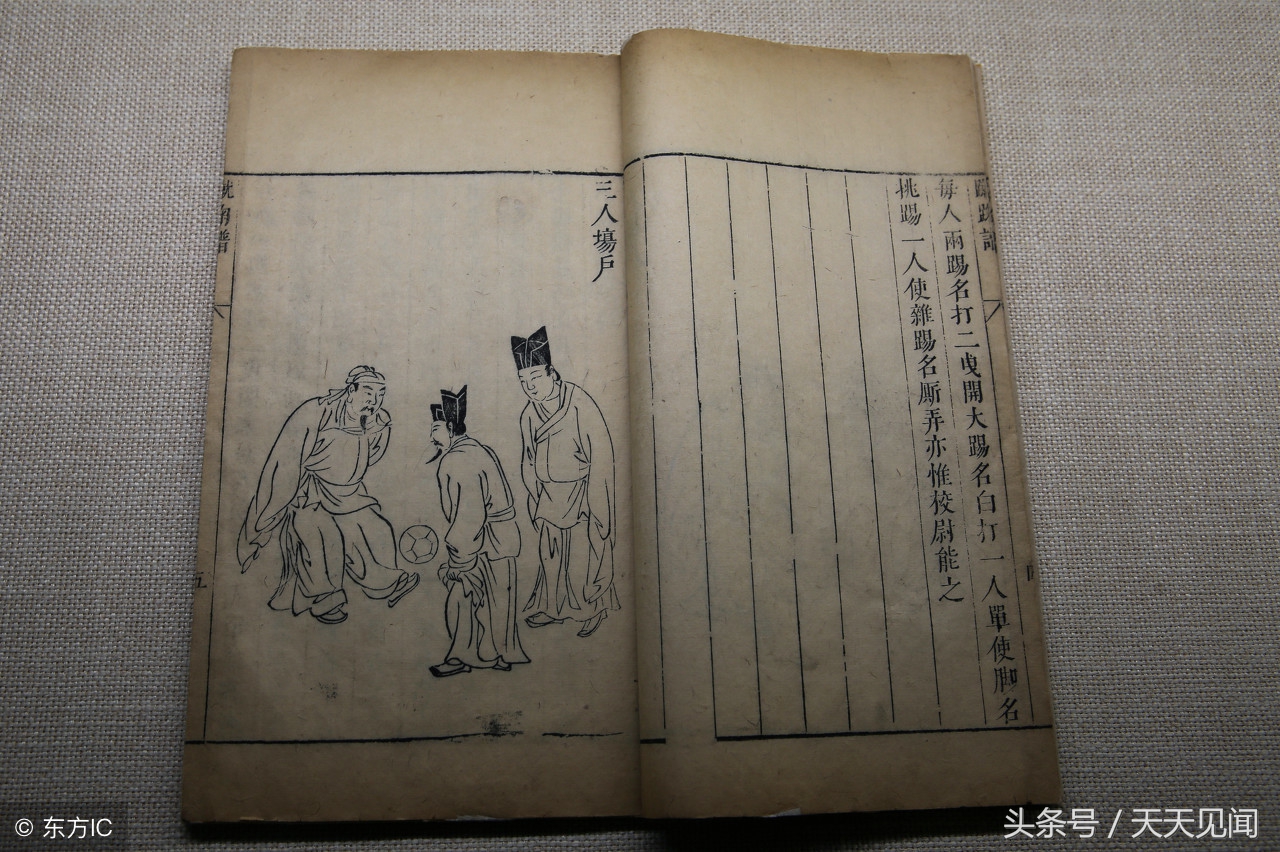 蹴踘譜
每人兩踢名打二曳開大踢名白打一人單使脚名
挑踢一人使雜踢名厮弄亦惟校尉能之
三人塲戶
五
© 东方IC
头条号 / 天天见闻